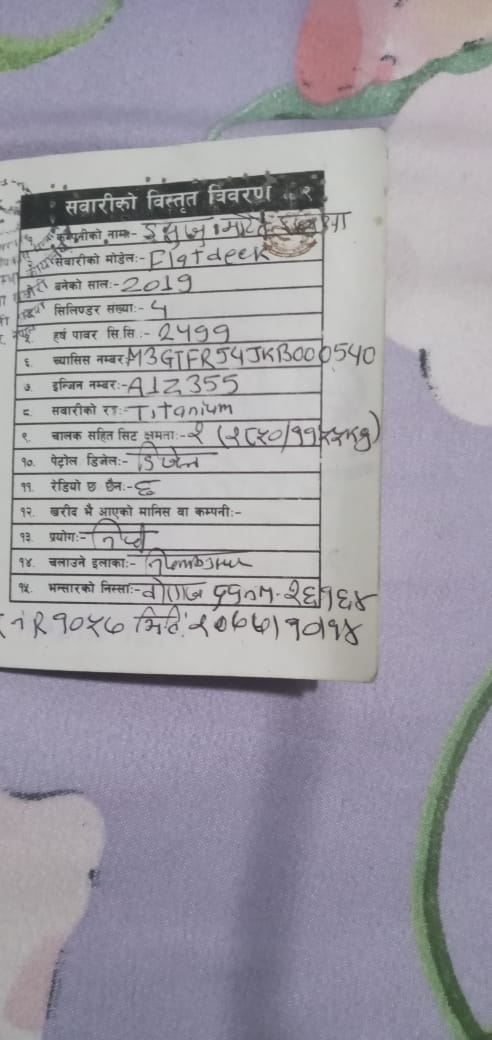 सवारीको विस्तृत विवरण
कम्पनीको नाम:- इसुजु मोटर्स
सवारीको मोडेल:- Flatdeck
बनेको साल:- 2019
सिलिण्डर संख्या:- 4
हर्ष पावर सि.सि.:- 2499
६. च्यासिस नम्बर: M3GTFR54JKB000540
७. इन्जिन नम्बर:- A1Z355
८. सवारीको रङ:- Titanium
९. चालक सहित सिट क्षमता:- २
१०. पेट्रोल डिजेल:- डिजेल
११. रेडियो छ छैन:- छ
१२. खरीद भै आएको मानिस वा कम्पनी:-
१३. प्रयोग:- निजी
१४. चलाउने इलाका:-
१५. भन्सारको निस्सा:-
१०५७ मिति: २०७७।१०।१४